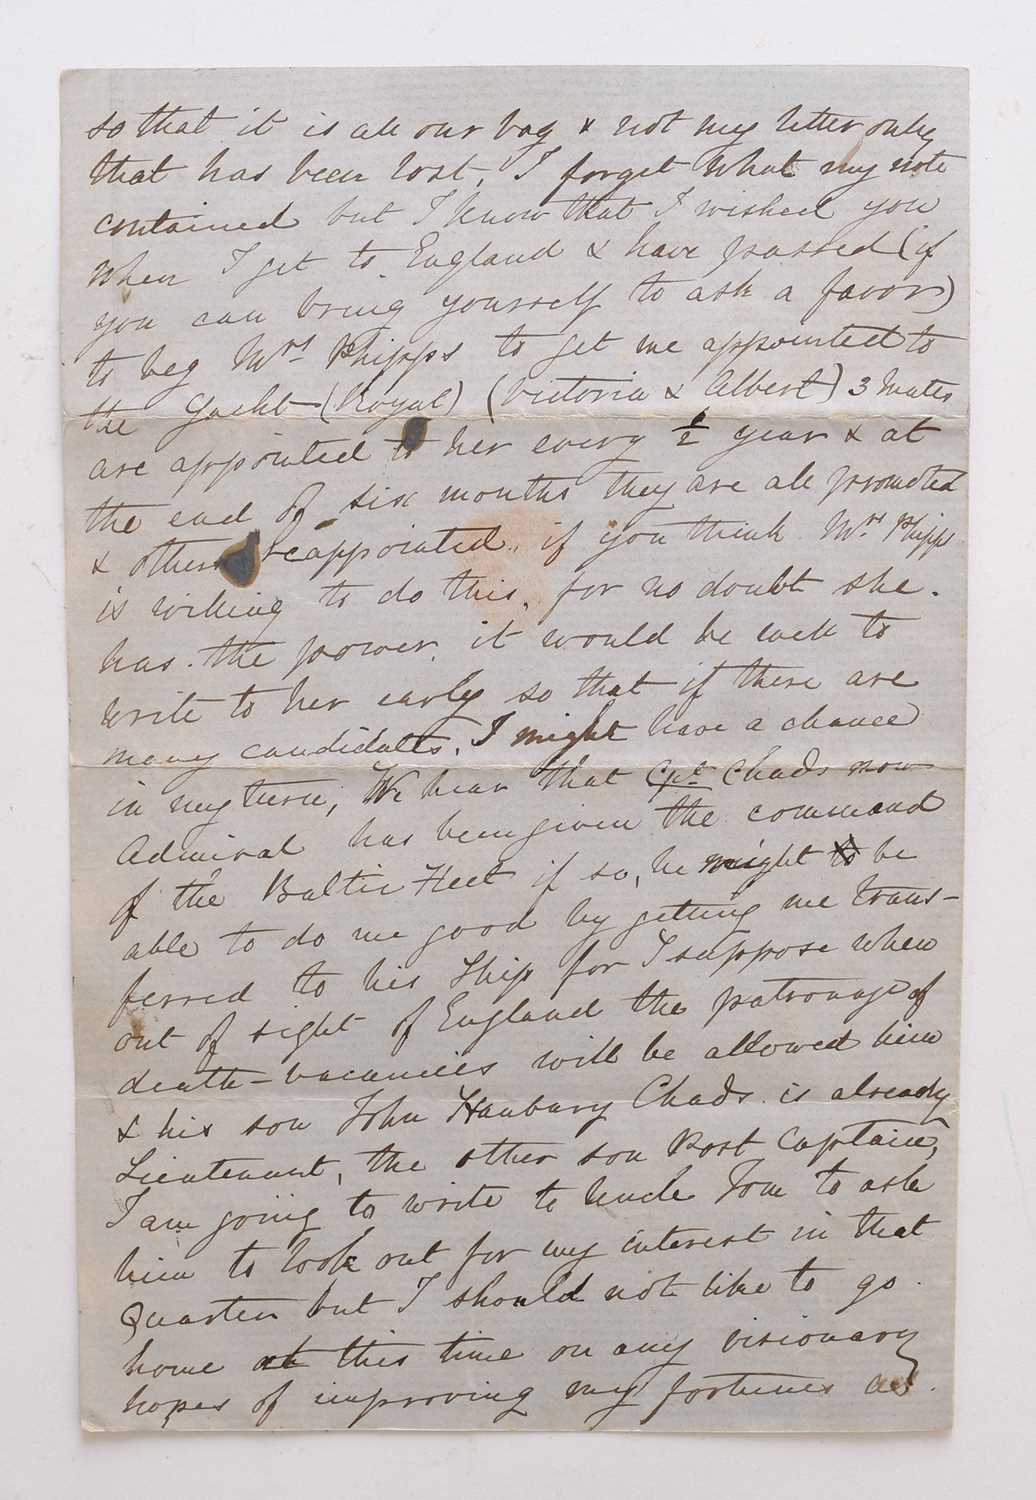 so that it is all our bag & not my letter only
that has been lost, I forget what my note
contained but I know that I wished you
when I get to England & have passed (if
you can bring yourself to ask a favor)
to beg Mrs Phipps to get me appointed to
the Yacht (Royal) (Victoria & Albert) 3 Mates
are appointed to her every ½ year & at
the end of six months they are all promoted
& others reappointed, if you think Mrs Phipps
is willing to do this, for no doubt she.
has. the power, it would be well to
write to her early so that if there are
many candidates, I might have a chance
in my turn, We hear that Cpt. Chads now
Admiral has been given the command
of the Baltic Fleet if so, he might to be
able to do me good by getting me trans-
ferred to his Ship for I suppose when
out of sight of England the patronage of
death-vacancies will be allowed him
& his son John Hanbury Chads. is already
Lieutenant, the other son Post Captain,
I am going to write to Uncle Tom to ask
him to look out for my interest in that
Quarter but I should not like to go.
home at this time on any visionary
hopes of improving my fortunes as.